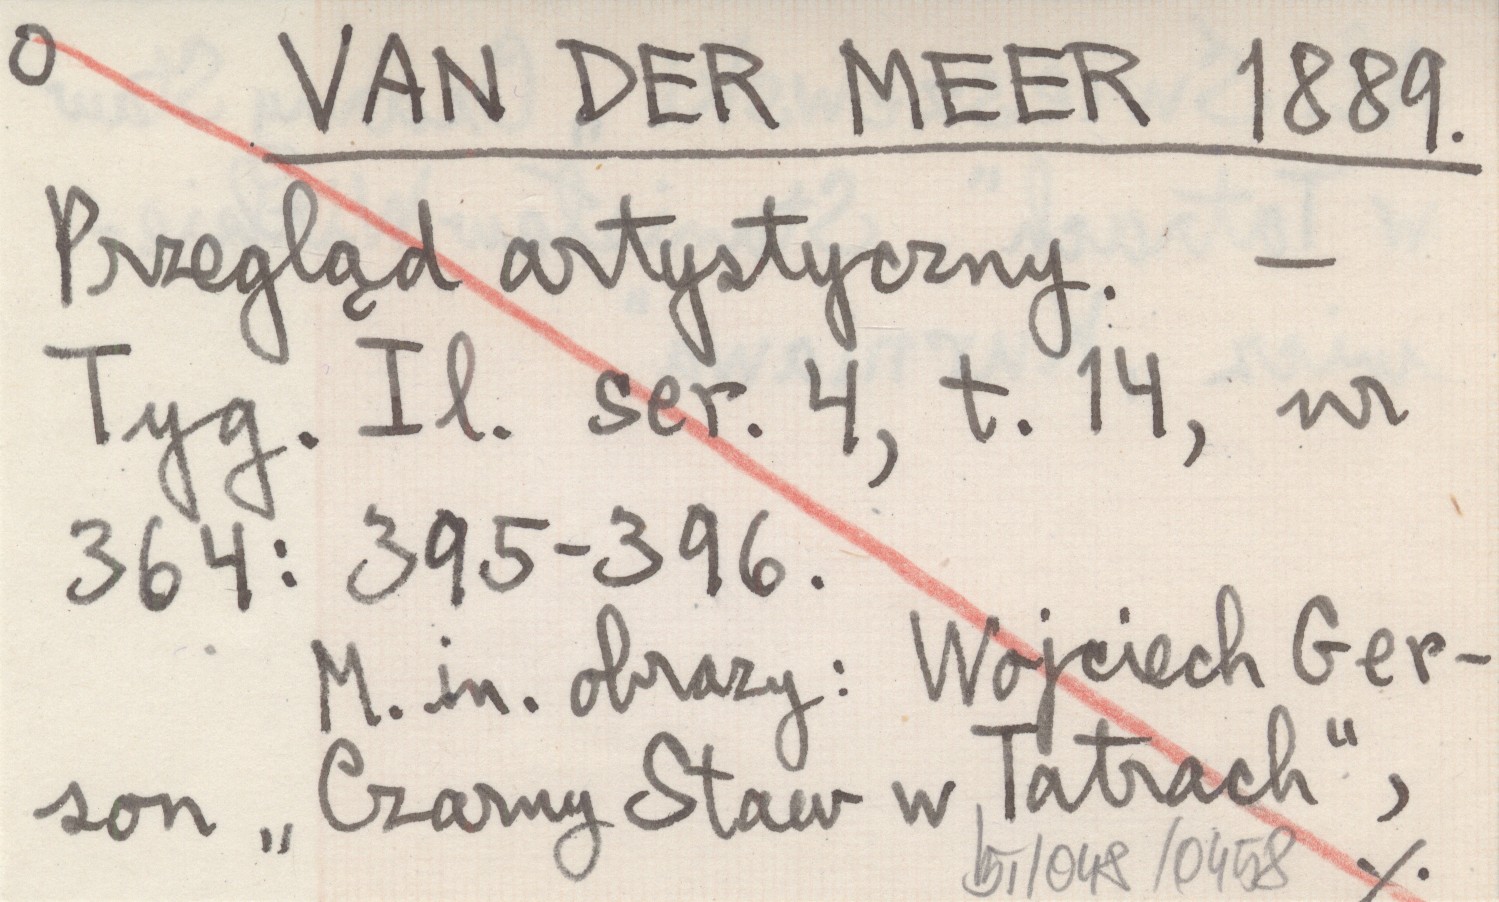 O VAN DER MEER 1889.
Przegląd artystyczny. —
Tyg. Il. ser. 4, t. 14, nr
364: 395-396.
M. in. obrazy: Wojciech Ger-
son „Czarny Staw w Tatrach",
/048/0458 ./.